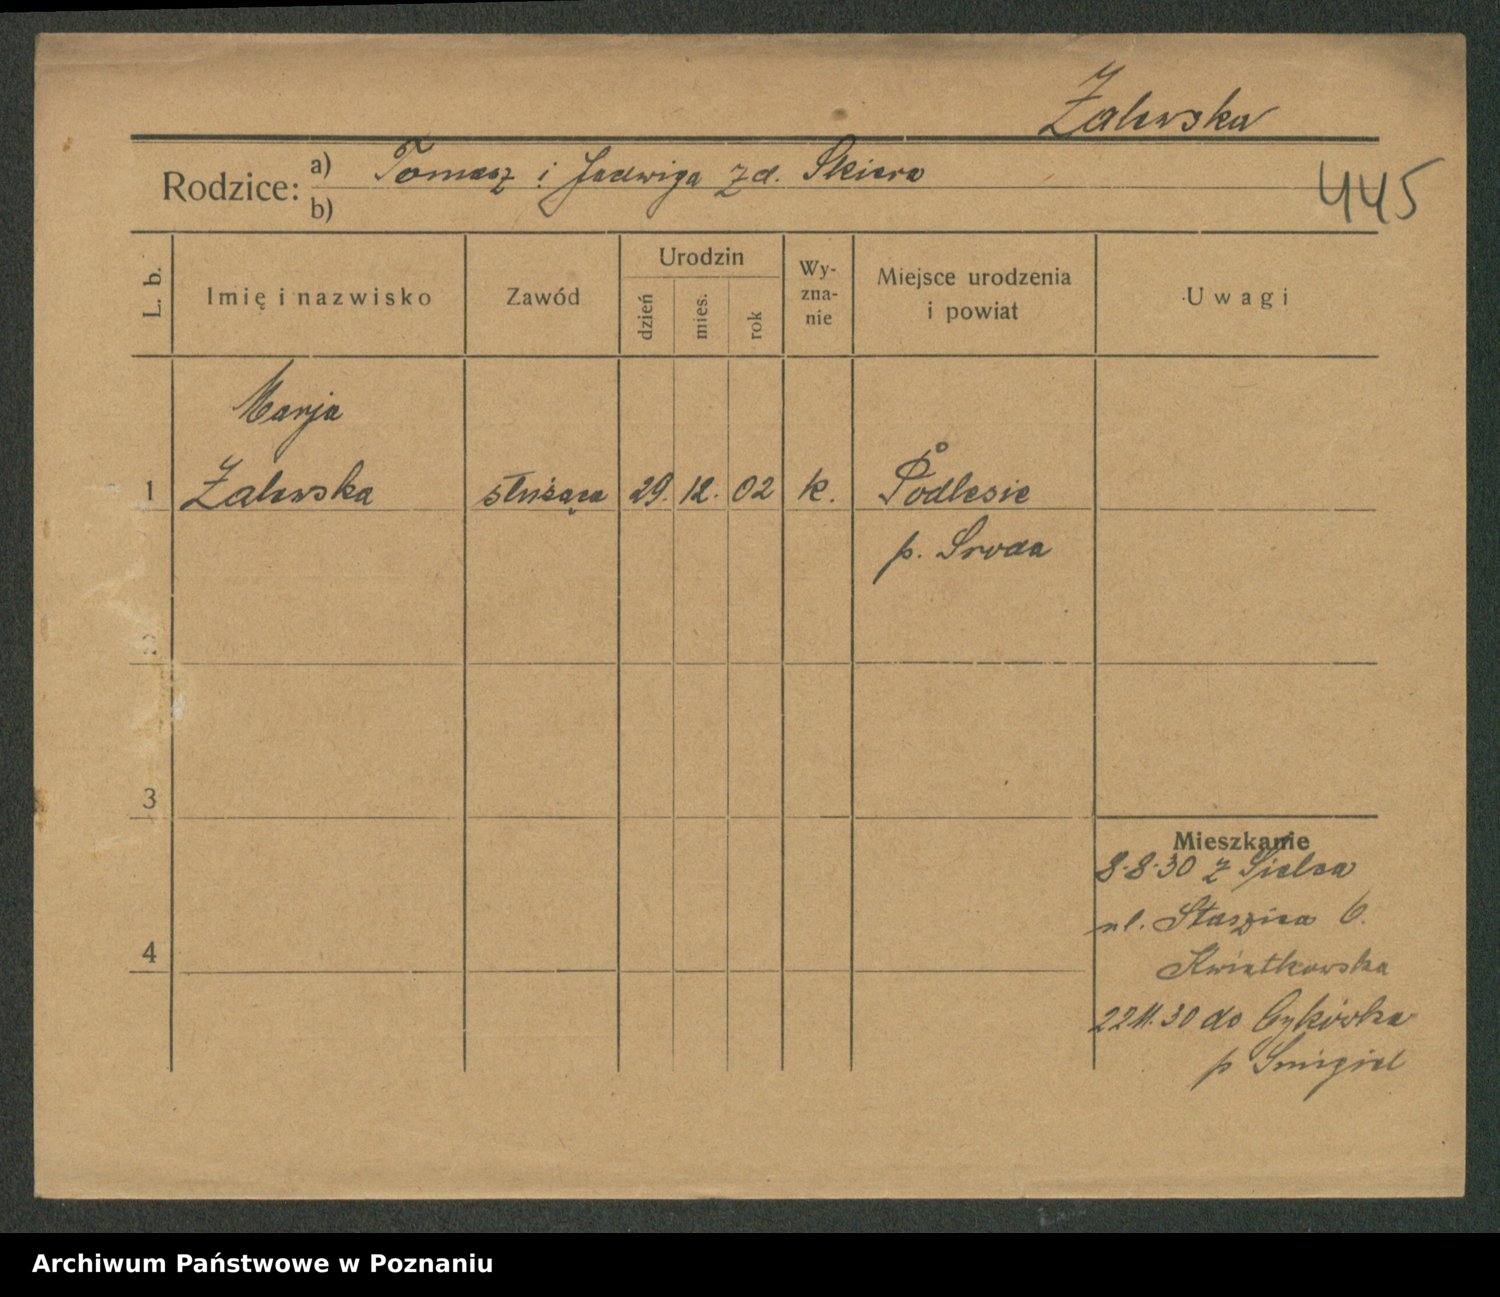 Zalewska
Rodzice: a) Tomasz i Jadwiga zd. Skiera
b)
445
L. b.
Imię i nazwisko
Zawód
Urodzin
dzień
mies.
rok
Wy-
zna-
nie
Miejsce urodzenia
i powiat
Uwagi
Marja
1 Zalewska służąca 29. 12. 02 k. Podlesie
p. Sroda
2
3
Mieszkanie
8.8.30 z Sielca
ul. Staszica 6.
Kwiatkowska
4
22.11.30 do
p Smigiel
Archiwum Państwowe w Poznaniu